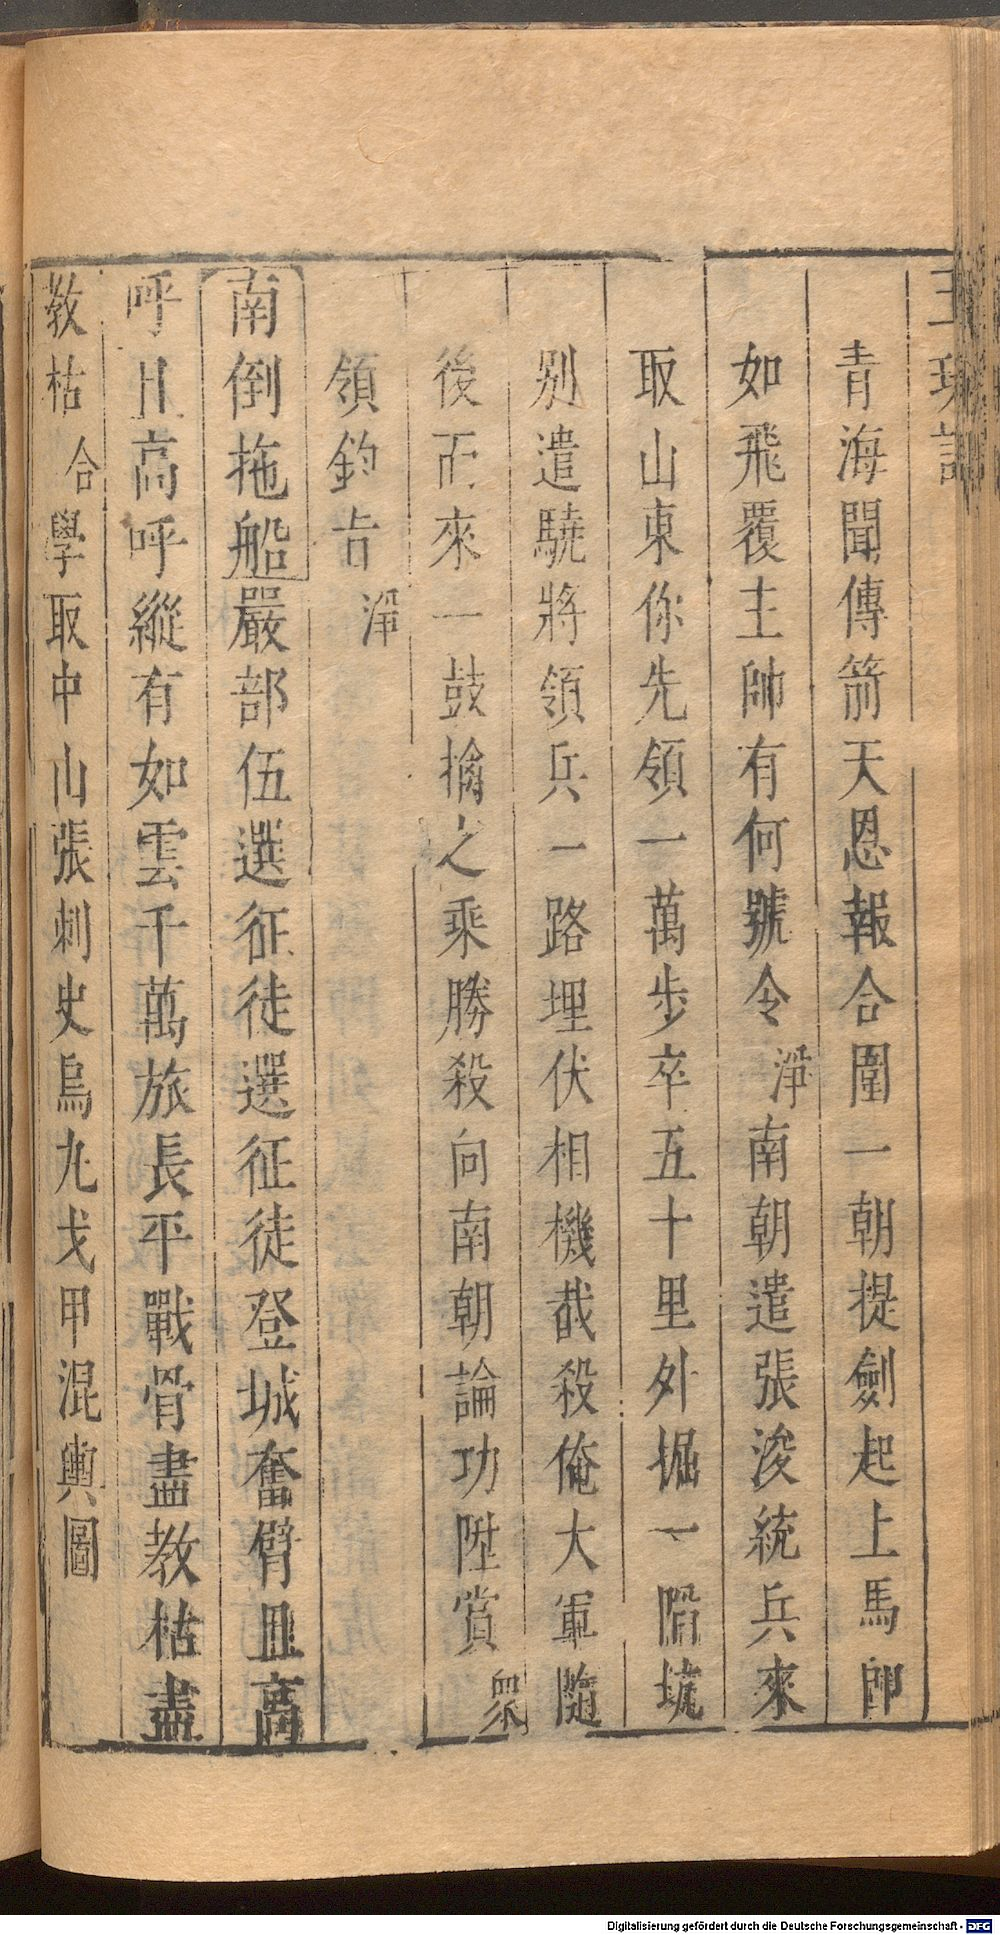 玉玦記
青海聞傳箭天恩報合圍一朝提劍起上馬即
如飛覆主帥有何號令淨南朝遣張浚統兵來
取山東你先領一萬步卒五十里外掘一陷坑
別遣驍將領兵一路埋伏相機截殺俺大軍隨
後而來一鼓擒之乘勝殺向南朝論功陞賞衆
領鈞旨淨
南倒拖船嚴部伍選征徒選征徒登城奮臂且高
呼且高呼縱有如雲千萬旅長平戰骨盡教枯盡
教枯合學取中山張刺史烏丸戈甲混輿圖
Digitalisierung gefördert durch die Deutsche Forschungsgemeinschaft - DFG